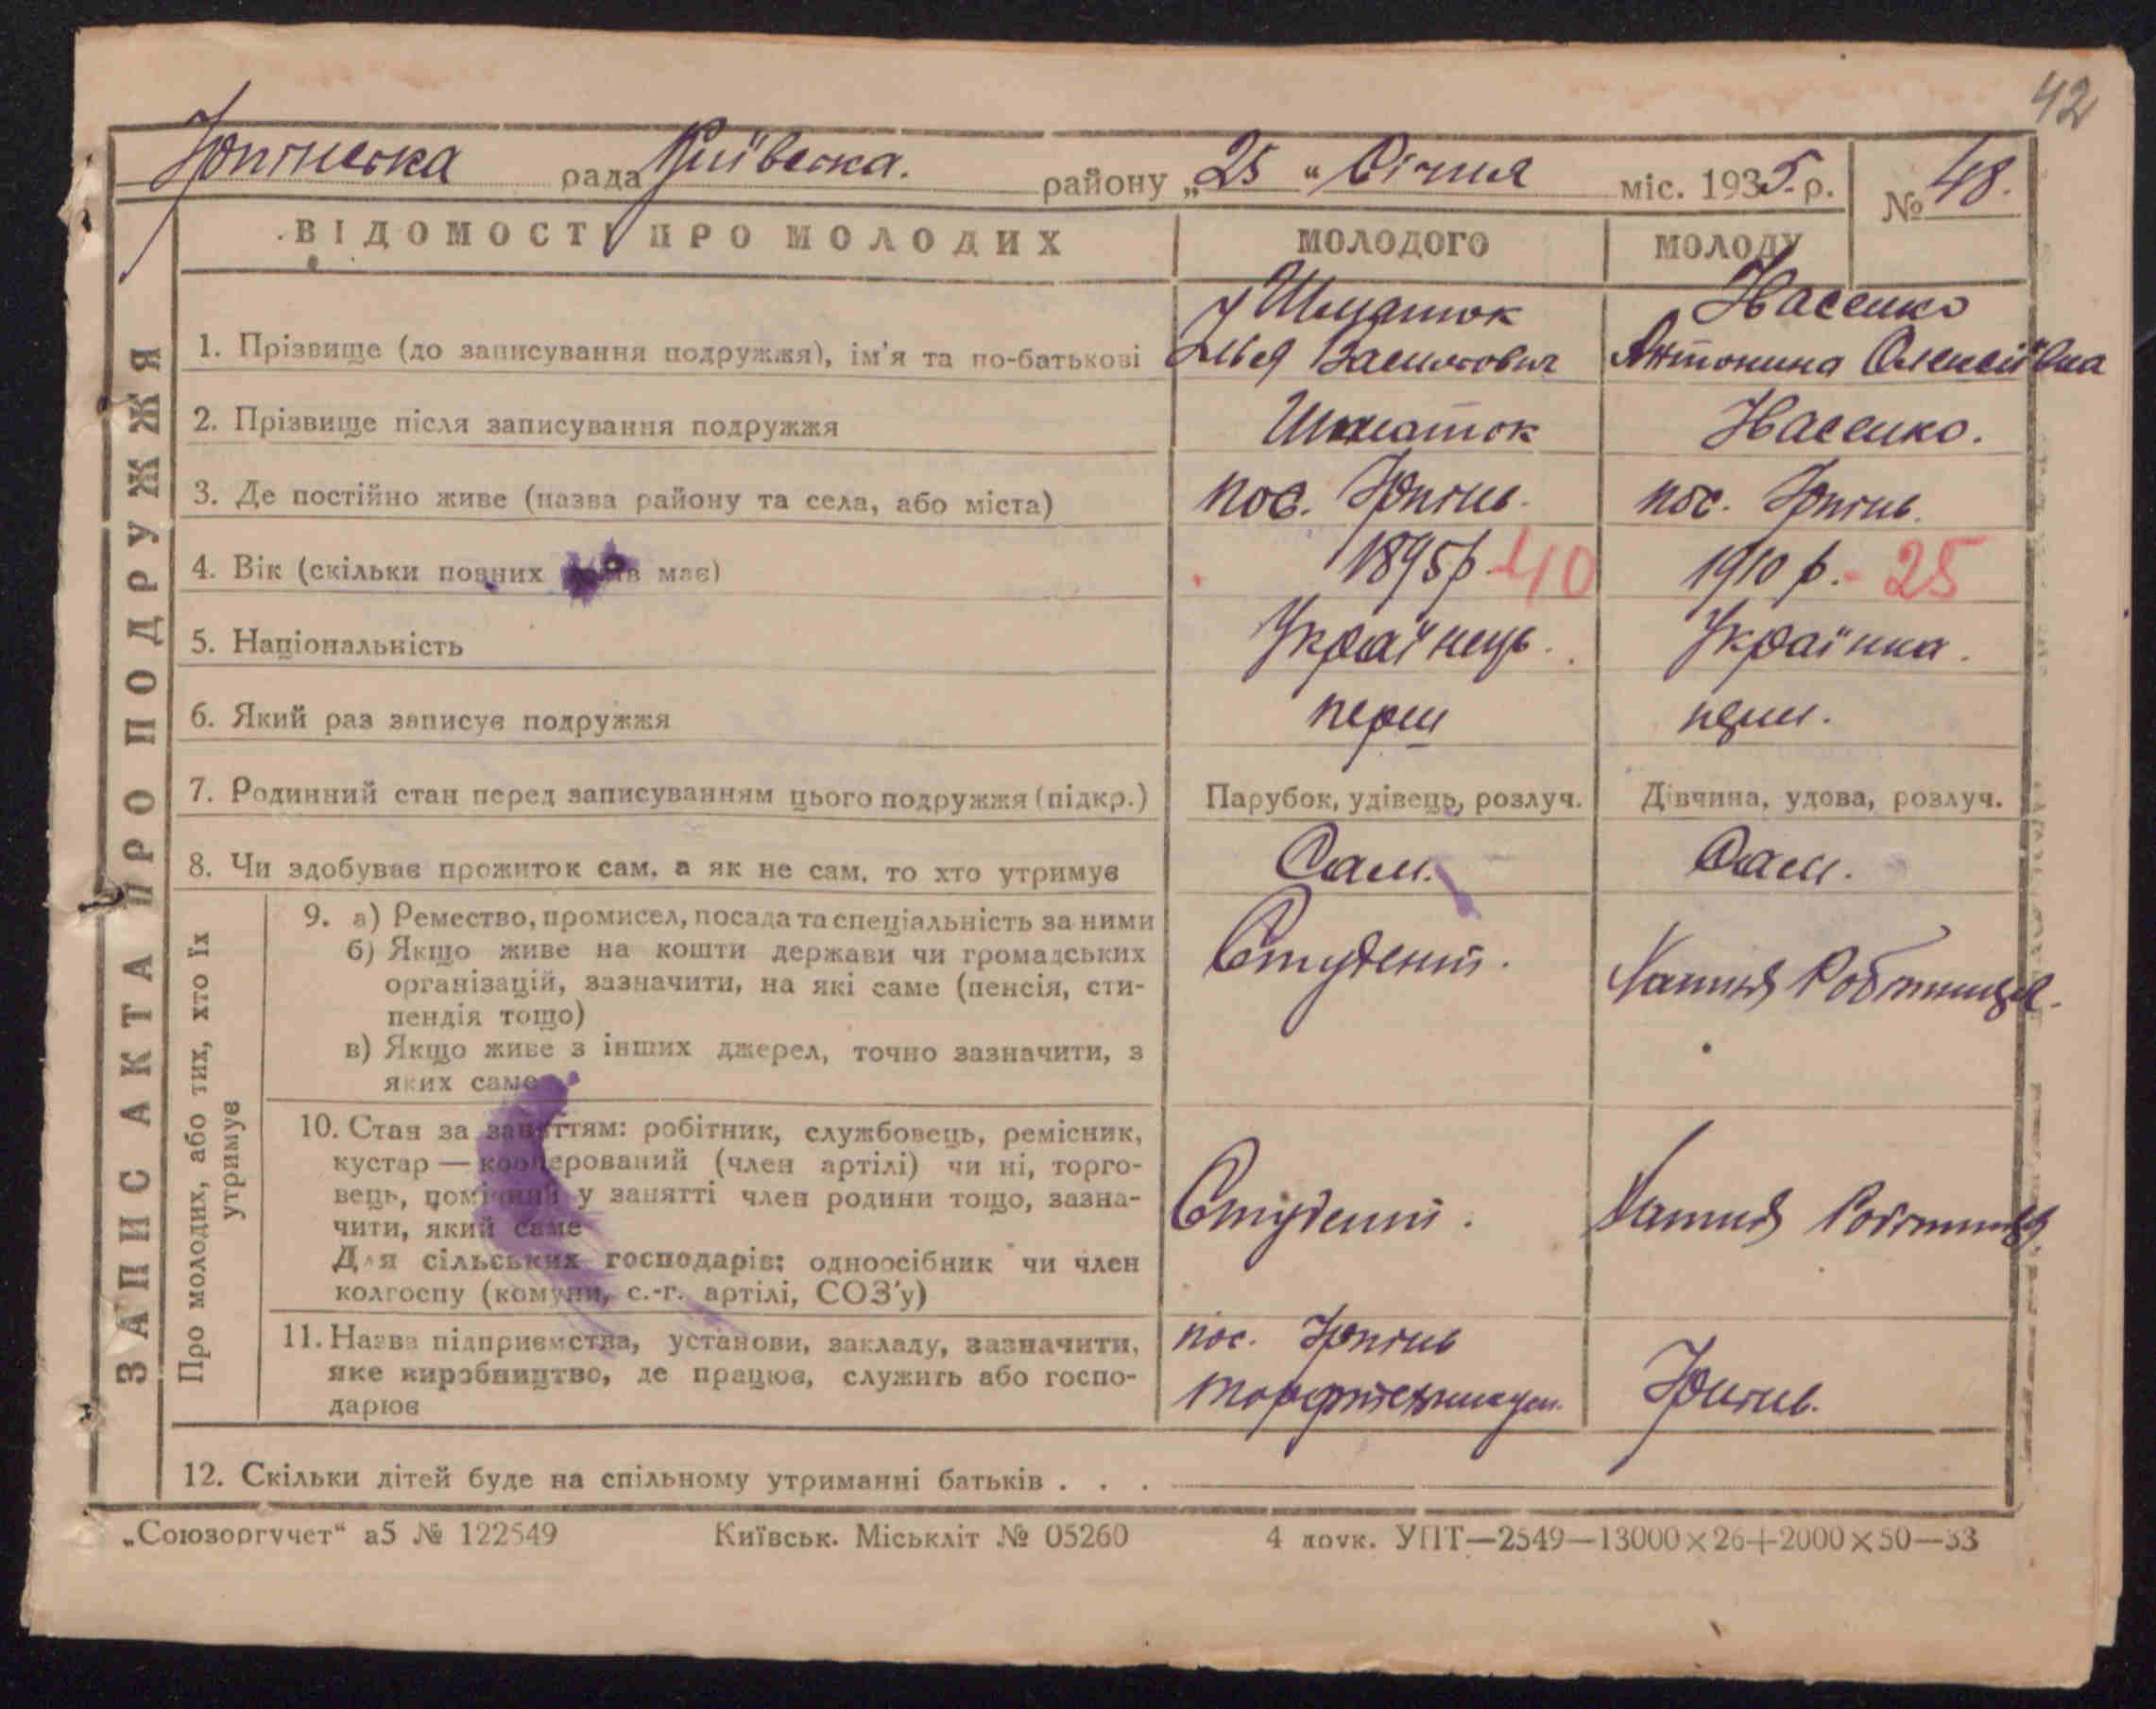 42
Ірпінська рада Київська. району „25 " Січня міс. 1935 р. № 48.
ВІДОМОСТІ ПРО МОЛОДИХ МОЛОДОГО МОЛОДУ
Шматок Насенко
1. Прізвище (до записування подружжя), ім'я та по-батькові Ілья Василович Антонина Олексіївна
2. Прізвище після записування подружжя Шматок Насенко.
3. Де постійно живе (назва району та села, або міста) пос. Ірпінь. пос. Ірпінь.
4. Вік (скільки повних має) 1895 р. 40 1910 р. - 25
5. Національність Українець. Українка.
6. Який раз записує подружжя перш перш.
7. Родинний стан перед записуванням цього подружжя (підкр.) Парубок, удівець, розлуч. Дівчина, удова, розлуч.
8. Чи здобуває прожиток сам, а як не сам, то хто утримує Сам. Сам.
9. а) Ремество, промисел, посада та спеціальність за ними
б) Якщо живе на кошти держави чи громадських Студент.
організацій, зазначити, на які саме (пенсія, сти- Робітниця.
пендія тощо)
в) Якщо живе з інших джерел, точно зазначити, з
яких саме
10. Стан за заняттям: робітник, службовець, ремісник,
кустар — кооперований (член артілі) чи ні, торго-
вець, помічний у занятті член родини тощо, зазна- Студент. Робітниця
чити, який саме
Для сільських господарів: одноосібник чи член
колгоспу (комуни, с.-г. артілі, СОЗ'у)
11. Назва підприємства, установи, закладу, зазначити, пос. Ірпінь
яке виробництво, де працює, служить або госпо- Ірпінь.
дарює
12. Скільки дітей буде на спільному утриманні батьків . . .
ЗАПИС АКТА ПРО ПОДРУЖЖЯ
Про молодих, або тих, хто їх
утримує
„Союзоргучет" а5 № 122549 Київськ. Міськліт № 05260 4 друк. УПТ—2549—13000×26+2000×50—33